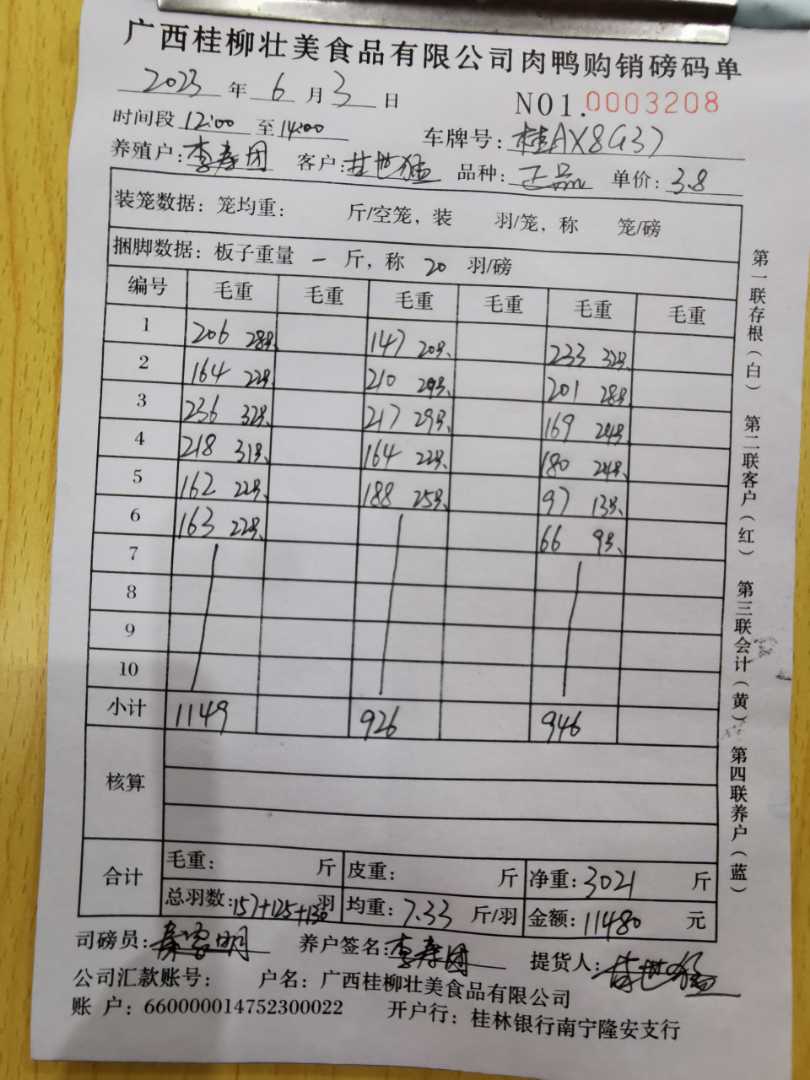 广西桂柳壮美食品有限公司肉鸭购销磅码单
2023 年 6 月 3 日 NO1.0003208
时间段 12:00 至 14:00 车牌号: 桂AX8G37
养殖户: 李寿团 客户: 甘世猛 品种: 正品 单价: 3.8
装笼数据: 笼均重: 斤/空笼, 装 羽/笼, 称 笼/磅
捆脚数据: 板子重量 一 斤, 称 20 羽/磅
编号 毛重 毛重 毛重 毛重 毛重 毛重
1 206 28只 147 20只 233 32只
2 164 22只 210 29只 201 28只
3 236 32只 217 29只 169 24只
4 218 31只 164 22只 180 24只
5 162 22只 188 25只 97 13只
6 163 22只 66 9只
7
8
9
10
小计 1149 926 946
核算
合计 毛重: 斤 皮重: 斤 净重: 3021 斤
总羽数: 157+125+130 羽 均重: 7.33 斤/羽 金额: 11480 元
司磅员: 养户签名: 李寿团 提货人: 甘世猛
公司汇款账号: 户名: 广西桂柳壮美食品有限公司
账 户: 660000014752300022 开户行: 桂林银行南宁隆安支行
第一联存根(白) 第二联客户(红) 第三联会计(黄) 第四联养户(蓝)